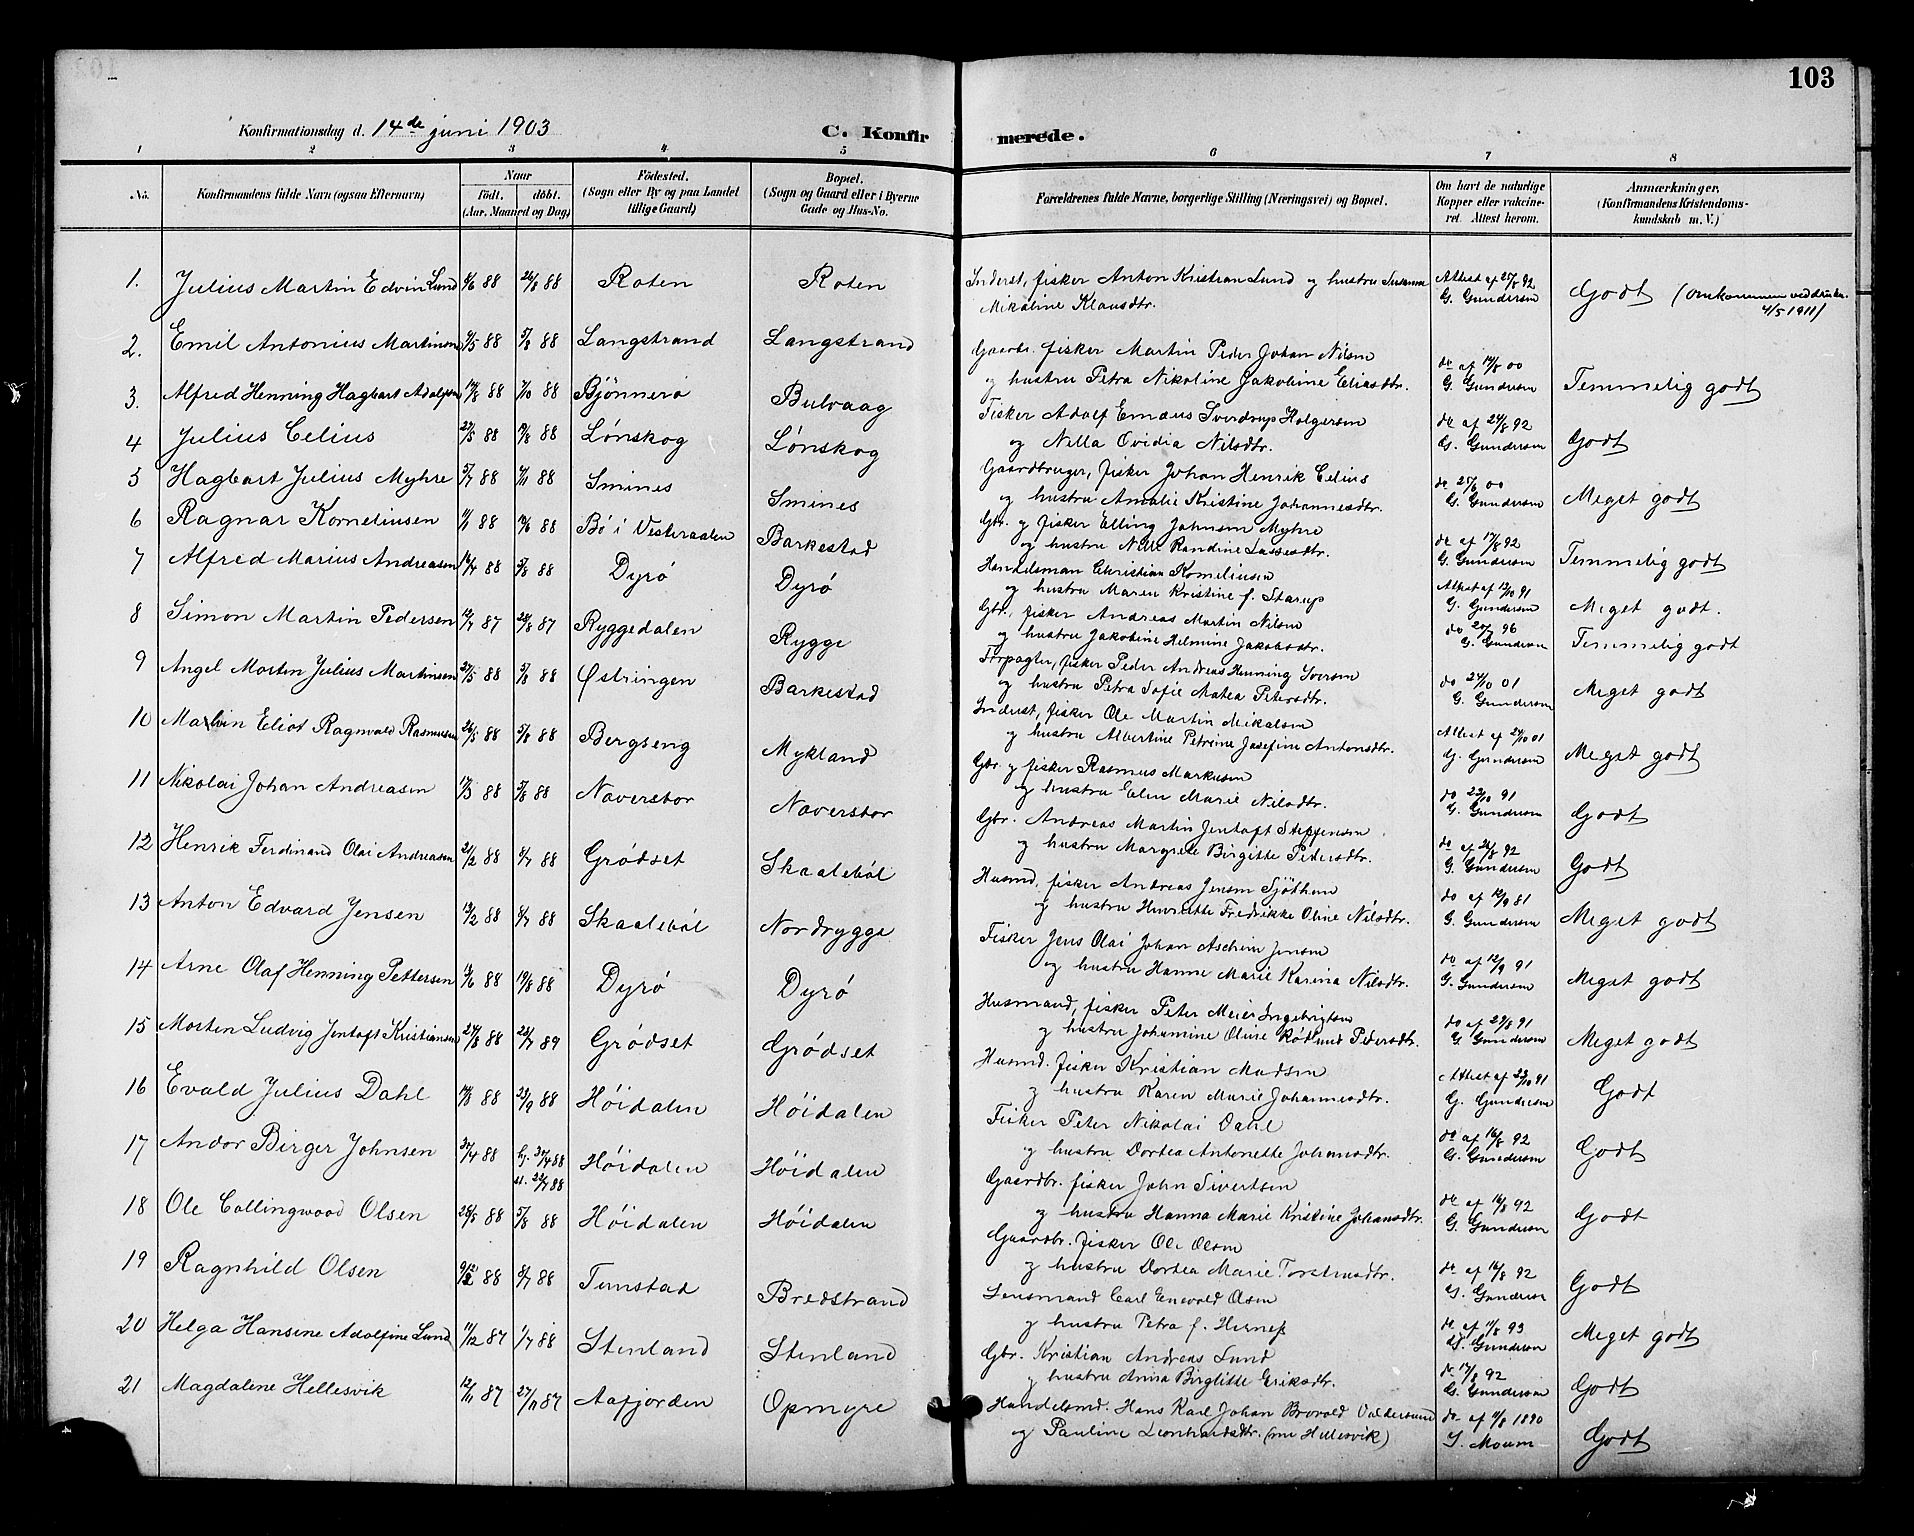 103
Konfirmationsdag d. 14de juni 1903
C. Konfirmerede.
1 2 3 4 5 6 7 8
No. Konfirmandens fulde Navn (ogsaa Efternavn) Naar født. døbt. (Aar. Maaned og Dag) Födested. (Sogn eller By og paa Landet tillige Gaard) Bopæl. (Sogn og Gaard eller i Byerne Gade og Hus-No. Forældrenes fulde Navne, borgerlige Stilling (Næringsvei) og Bopæl. Om havt de naturlige Kopper eller vakcineret. Attest herom. Anmærkninger. (Konfirmandens Kristendomskundskab m. V.)
1. Julius Martin Edvin Lund 8/6 88 26/8 88 Roten Roten Inderst, fisker Anton Kristian Lund og hustru Susanna Mikaline Klausdtr. Attest af 25/8 92 G. Gundersen Godt (Omkommen ved drukn. 4/5 1911)
2. Emil Antonius Martinsen 9/5 88 5/8 88 Langstrand Langstrand Gaardbr. fisker Martin Peder Johan Nilsen og hustru Petra Nikoline Jakobine Eliasdtr. do af 17/8 00 G. Gundersen Temmelig godt
3. Alfred Henning Hagbart Adolfsen 14/8 88 7/10 88 Bjönnerö Bulvaag Fisker Adolf Emaus Sverdrup Holgersen og Nella Ovidia Nilsdtr. do af 24/8 92 G. Gundersen Godt
4 Julius Celius 27/5 88 19/8 88 Lónskog Lónskog Gaardbruger, fisker Johan Henrik Celius og hustru Amalie Kristine Johannesdtr. do 25/8 00 G. Gundersen Meget godt
5 Hagbart Julius Myhre 5/7 88 11/11 88 Smines Smines Gbr. og fisker Elling Johnsen Myhre og hustru Nelle Randine Lassesdtr. do af 17/8 92 G. Gundersen Temmelig godt
6 Ragnar Korneliusen 11/1 88 19/6 88 Bö i Vesteraalen Barkestad Handelsman Christian Korneliusen og hustru Maren Kristine f. Starup Attest af 12/10 91 G. Gundersen Meget godt.
7 Alfred Marius Andreasen 14/4 88 5/8 88 Dyrö Dyrö Gbr, fisker Andreas Martin Nilsen og hustru Jakobine Helmine Jakobsdtr. do 20/7 96 G. Gundersen Temmelig godt
8 Simon Martin Pedersen 12/7 87 28/8 87 Ryggedalen Rygge Forpagter, fisker Peder Andreas Henning Iversen og hustru Petra Sofie Matea Petersdtr. do 24/10 01 G. Gundersen Meget godt
9 Angel Morten Julius Martinsen 27/5 88 5/8 88 Østringen Barkestad Inderst, fisker Ole Martin Mikalsen og hustru Albertine Petrine Josefine Antonsdtr. Attest af 24/10 01 G. Gundersen Meget godt
10 Malvin Eliot Ragnvald Rasmusen 26/5 88 5/8 88 Bergseng Mykland Gbr. og fisker Rasmus Markusen og hustru Elen Marie Nilsdtr. do 23/10 91 G. Gundersen Godt
11 Nikolai Johan Andreasen 17/3 88 5/8 88 Naverstor Naverstor Gbr. Andreas Martin Jentoft Steffensen og hustru Margrete Birgitte Petersdtr. do af 26/8 92 G. Gundersen Godt
12 Henrik Ferdinand Olai Andreasen 21/2 88 8/7 88 Grödset Skaaleböl Husmd, fisker Andreas Jensen Sjöthun og hustru Henriette Fredrikke Oline Nilsdtr. do af 12/9 81 G. Gundersen Meget godt
13 Anton Edvard Jensen 13/2 88 8/7 88 Skaaleböl Nordrygge Fisker Jens Olai Johan Aschim Jensen og hustru Hanne Marie Karina Nilsdtr. do af 12/9 91 G. Gundersen Meget godt
14 Arne Olaf Henning Pettersen 13/6 88 19/8 88 Dyrö Dyrö Husmand, fisker Peter Meier Ingebrigtsen og hustru Johannine Oline Rödlund Pedersdtr. do af 29/8 91 G. Gundersen Meget godt
15 Morten Ludvig Jentoft Kristiansen 24/8 88 28/7 89 Grödset Grödset Husmd. fisker Kristian Madsen og hustru Karen Marie Johannesdtr. Attest af 23/10 91 G. Gundersen Godt
16 Evald Julius Dahl 14/8 88 23/9 88 Höidalen Höidalen Fisker Peter Nikolai Dahl og hustru Dortea Antonette Johansdtr. do af 16/8 92 G. Gundersen Godt
17 Andor Birger Johnsen 30/4 88 hj. 30/4 88 st. 22/7 88 Höidalen Höidalen Gaardbr. fisker John Sivertsen og hustru Hanna Marie Kristine Johansdtr. do af 16/8 92 G. Gundersen Godt
18 Ole Collingwood Olsen 28/5 88 5/8 88 Höidalen Höidalen Gaardbr. fisker Ole Olsen og hustru Dortea Marie Torstensdtr. do af 16/8 92 G. Gundersen Godt
19 Ragnhild Olsen 9/2 88 8/7 88 Tunstad Bredstrand Lensmand Carl Enevold Olsen og hustru Petra f. Hernes do af 11/8 93 G. Gundersen Meget godt
20 Helga Hansine Adolfine Lund 11/12 87 1/7 88 Stenland Stenland Gbr. Kristian Andreas Lund og hustru Anna Birgitte Eriksdtr. do 17/8 92 G. Gundersen Godt
21 Magdalene Hellesvik 12/11 87 27/11 87 Aafjorden Opmyre Handelsmd. Hans Karl Johan Brovold Valdersund og Pauline Leonhardsdtr. (nu Hellesvik) do af 11/8 1890 J. Moum Godt